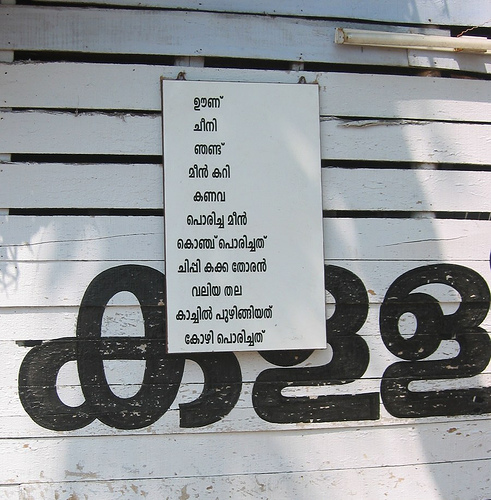 ഊണ്
ചീനി
ഞണ്ട്
മീൻ കറി
കണവ
പൊരിച്ച മീൻ
കൊഞ്ച് പൊരിച്ചത്
ചിപ്പി കക്ക തോരൻ
വലിയ തല
കാച്ചിൽ പുഴിങ്ങിയത്
കോഴി പൊരിച്ചത്
കള്ള